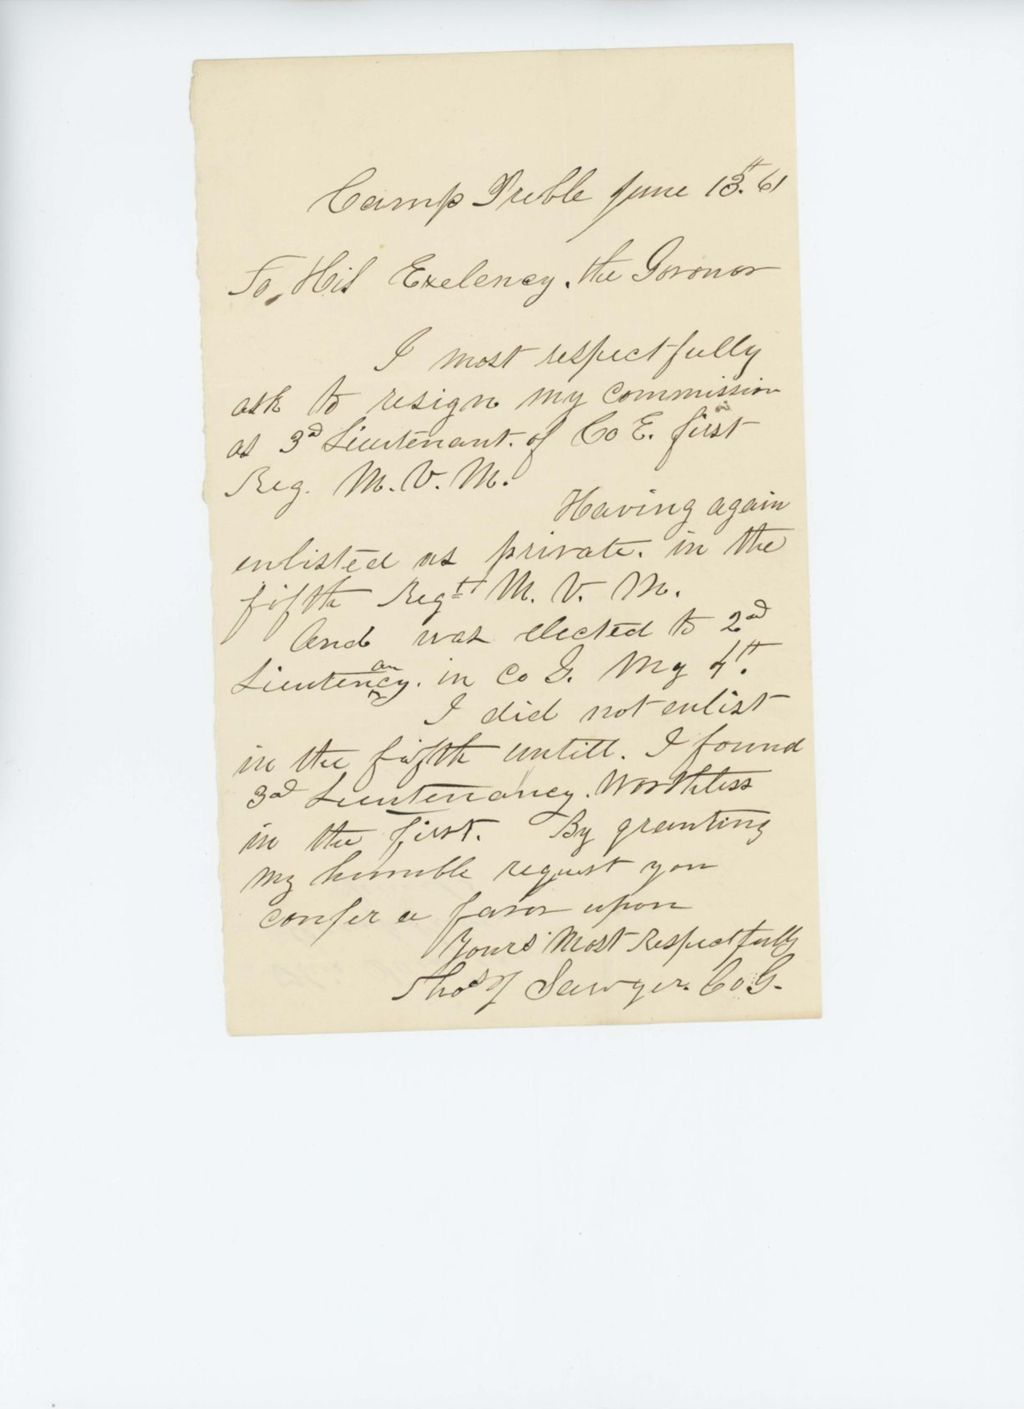 Camp Preble June 13th. 61
To, His Exelency. the Goronor
I most respectfully
ask to resign my commission
as 3d Lieutenant. of Co E. first
Reg. M. V. M.
Having again
enlisted as private. in the
fifth Regt M. V. M.
And was elected to 2nd
Lieutenancy. in Co G. My 4th.
I did not enlist
in the fifth untill. I found
3d Lieutenancy. Worthless
in the first. By granting
my humble request you
confer a favor upon
Yours Most Respectfully
Thos J Sawyer. Co G.